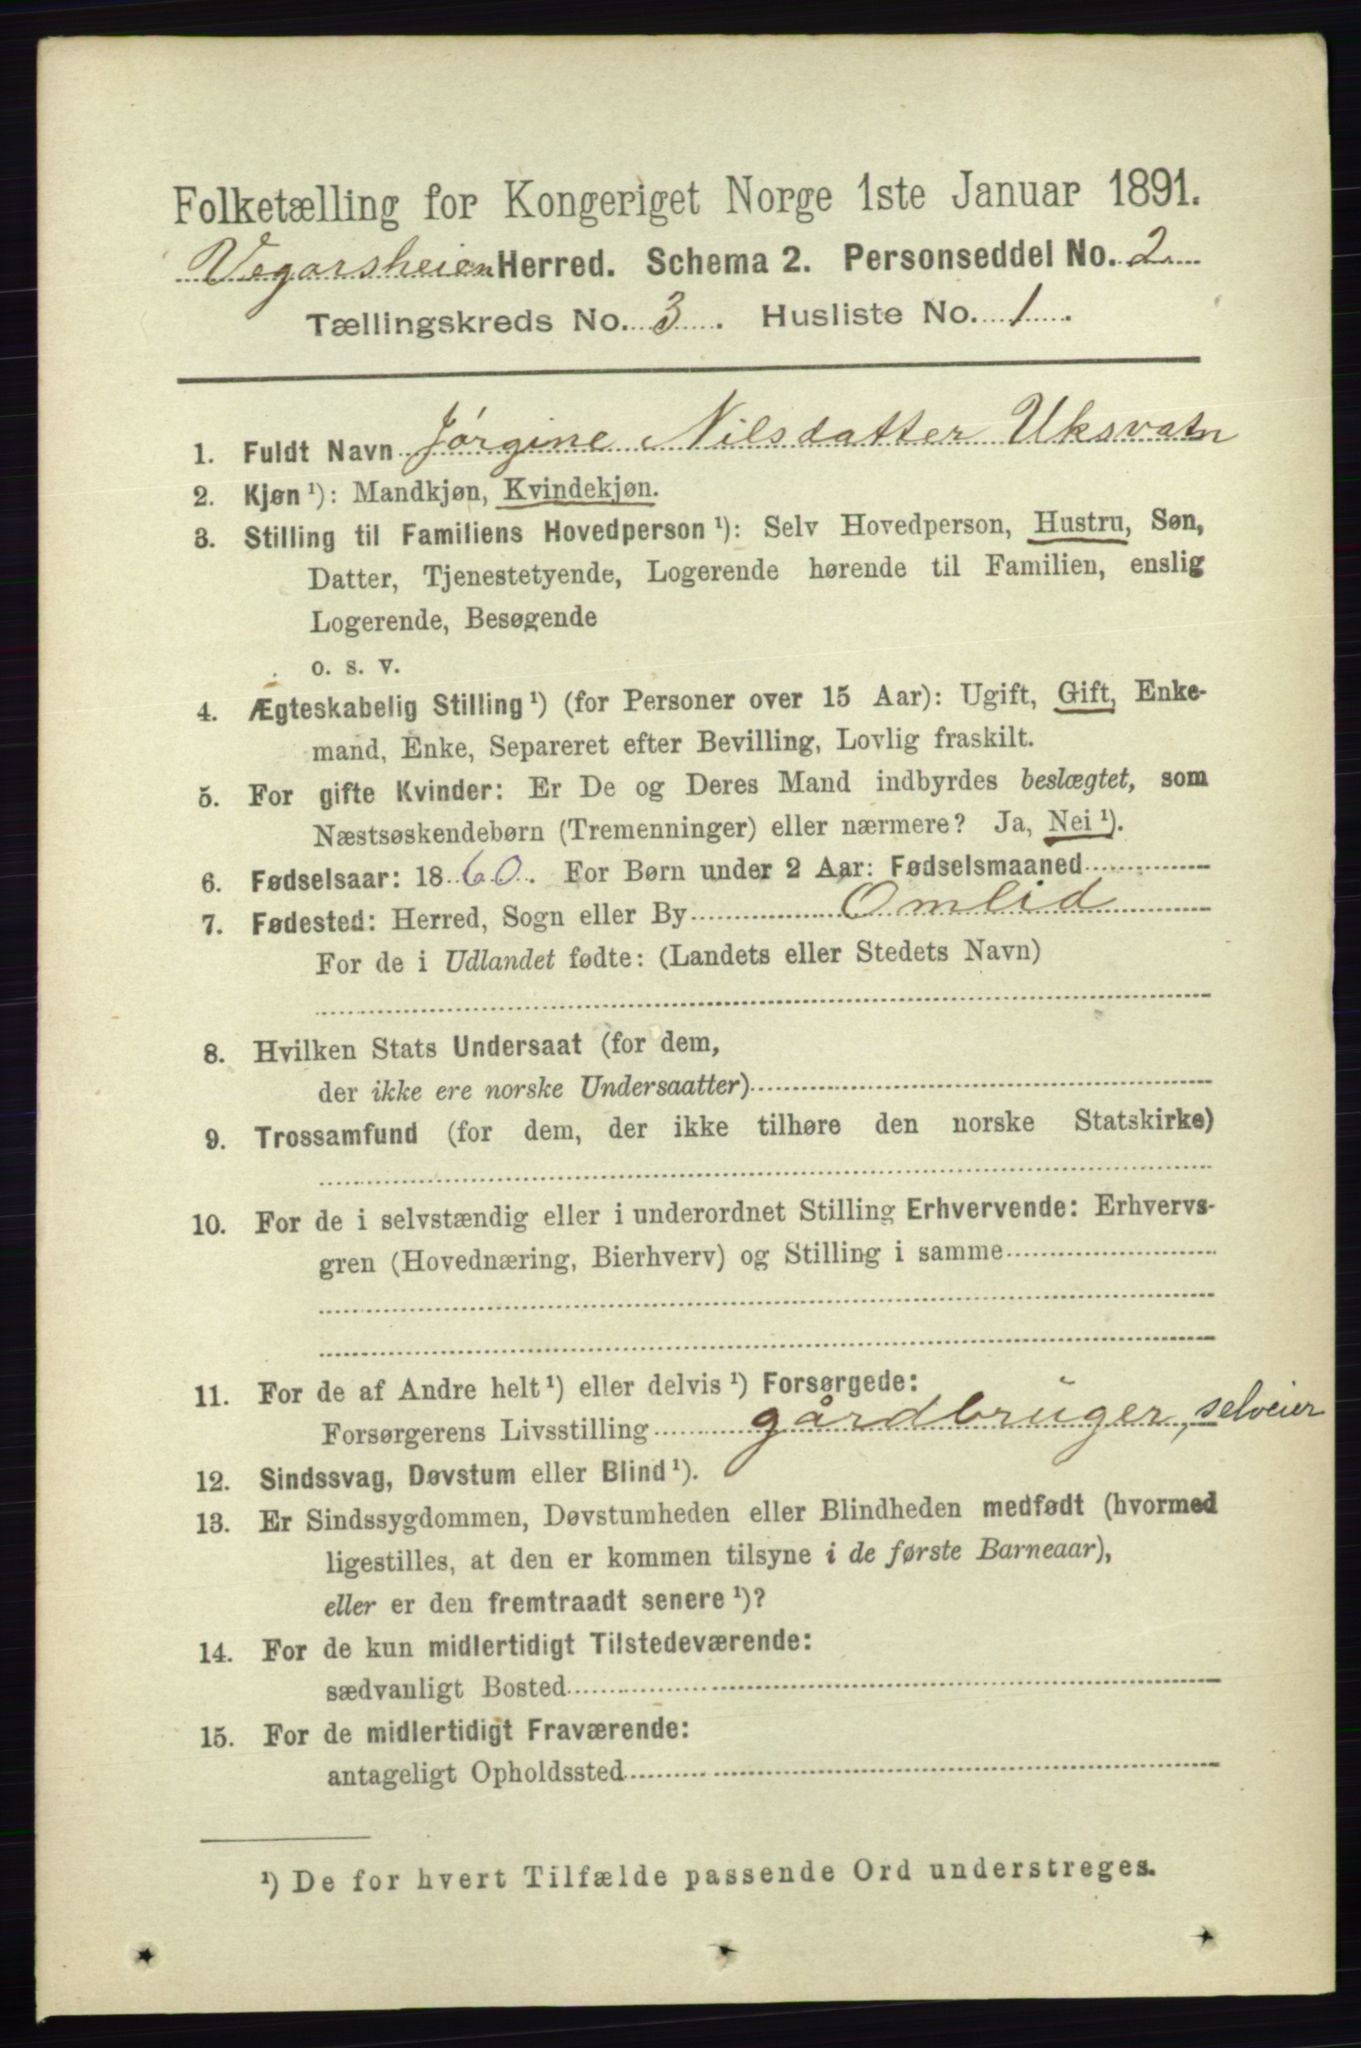 Folketælling for Kongeriget Norge 1ste Januar 1891.
Vegarsheien Herred. Schema 2. Personseddel No. 2
Tællingskreds No. 3. Husliste No. 1.
1. Fuldt Navn Jørgine Nilsdatter Uksvatn
2. Kjøn ¹): Mandkjøn, Kvindekjøn.
3. Stilling til Familiens Hovedperson ¹): Selv Hovedperson, Hustru, Søn,
Datter, Tjenestetyende, Logerende hørende til Familien, enslig
Logerende, Besøgende
o. s. v.
4. Ægteskabelig Stilling ¹) (for Personer over 15 Aar): Ugift, Gift, Enke-
mand, Enke, Separeret efter Bevilling, Lovlig fraskilt.
5. For gifte Kvinder: Er De og Deres Mand indbyrdes beslægtet, som
Næstsøskendebørn (Tremenninger) eller nærmere? Ja, Nei ¹).
6. Fødselsaar: 1860. For Børn under 2 Aar: Fødselsmaaned
7. Fødested: Herred, Sogn eller By Omlid
For de i Udlandet fødte: (Landets eller Stedets Navn)
8. Hvilken Stats Undersaat (for dem,
der ikke ere norske Undersaatter)
9. Trossamfund (for dem, der ikke tilhøre den norske Statskirke)
10. For de i selvstændig eller i underordnet Stilling Erhvervende: Erhvervs-
gren (Hovednæring, Bierhverv) og Stilling i samme
11. For de af Andre helt ¹) eller delvis ¹) Forsørgede:
Forsørgerens Livsstilling gårdbruger, selveier
12. Sindssvag, Døvstum eller Blind ¹).
13. Er Sindssygdommen, Døvstumheden eller Blindheden medfødt (hvormed
ligestilles, at den er kommen tilsyne i de første Barneaar),
eller er den fremtraadt senere ¹)?
14. For de kun midlertidigt Tilstedeværende:
sædvanligt Bosted
15. For de midlertidigt Fraværende:
antageligt Opholdssted
¹) De for hvert Tilfælde passende Ord understreges.